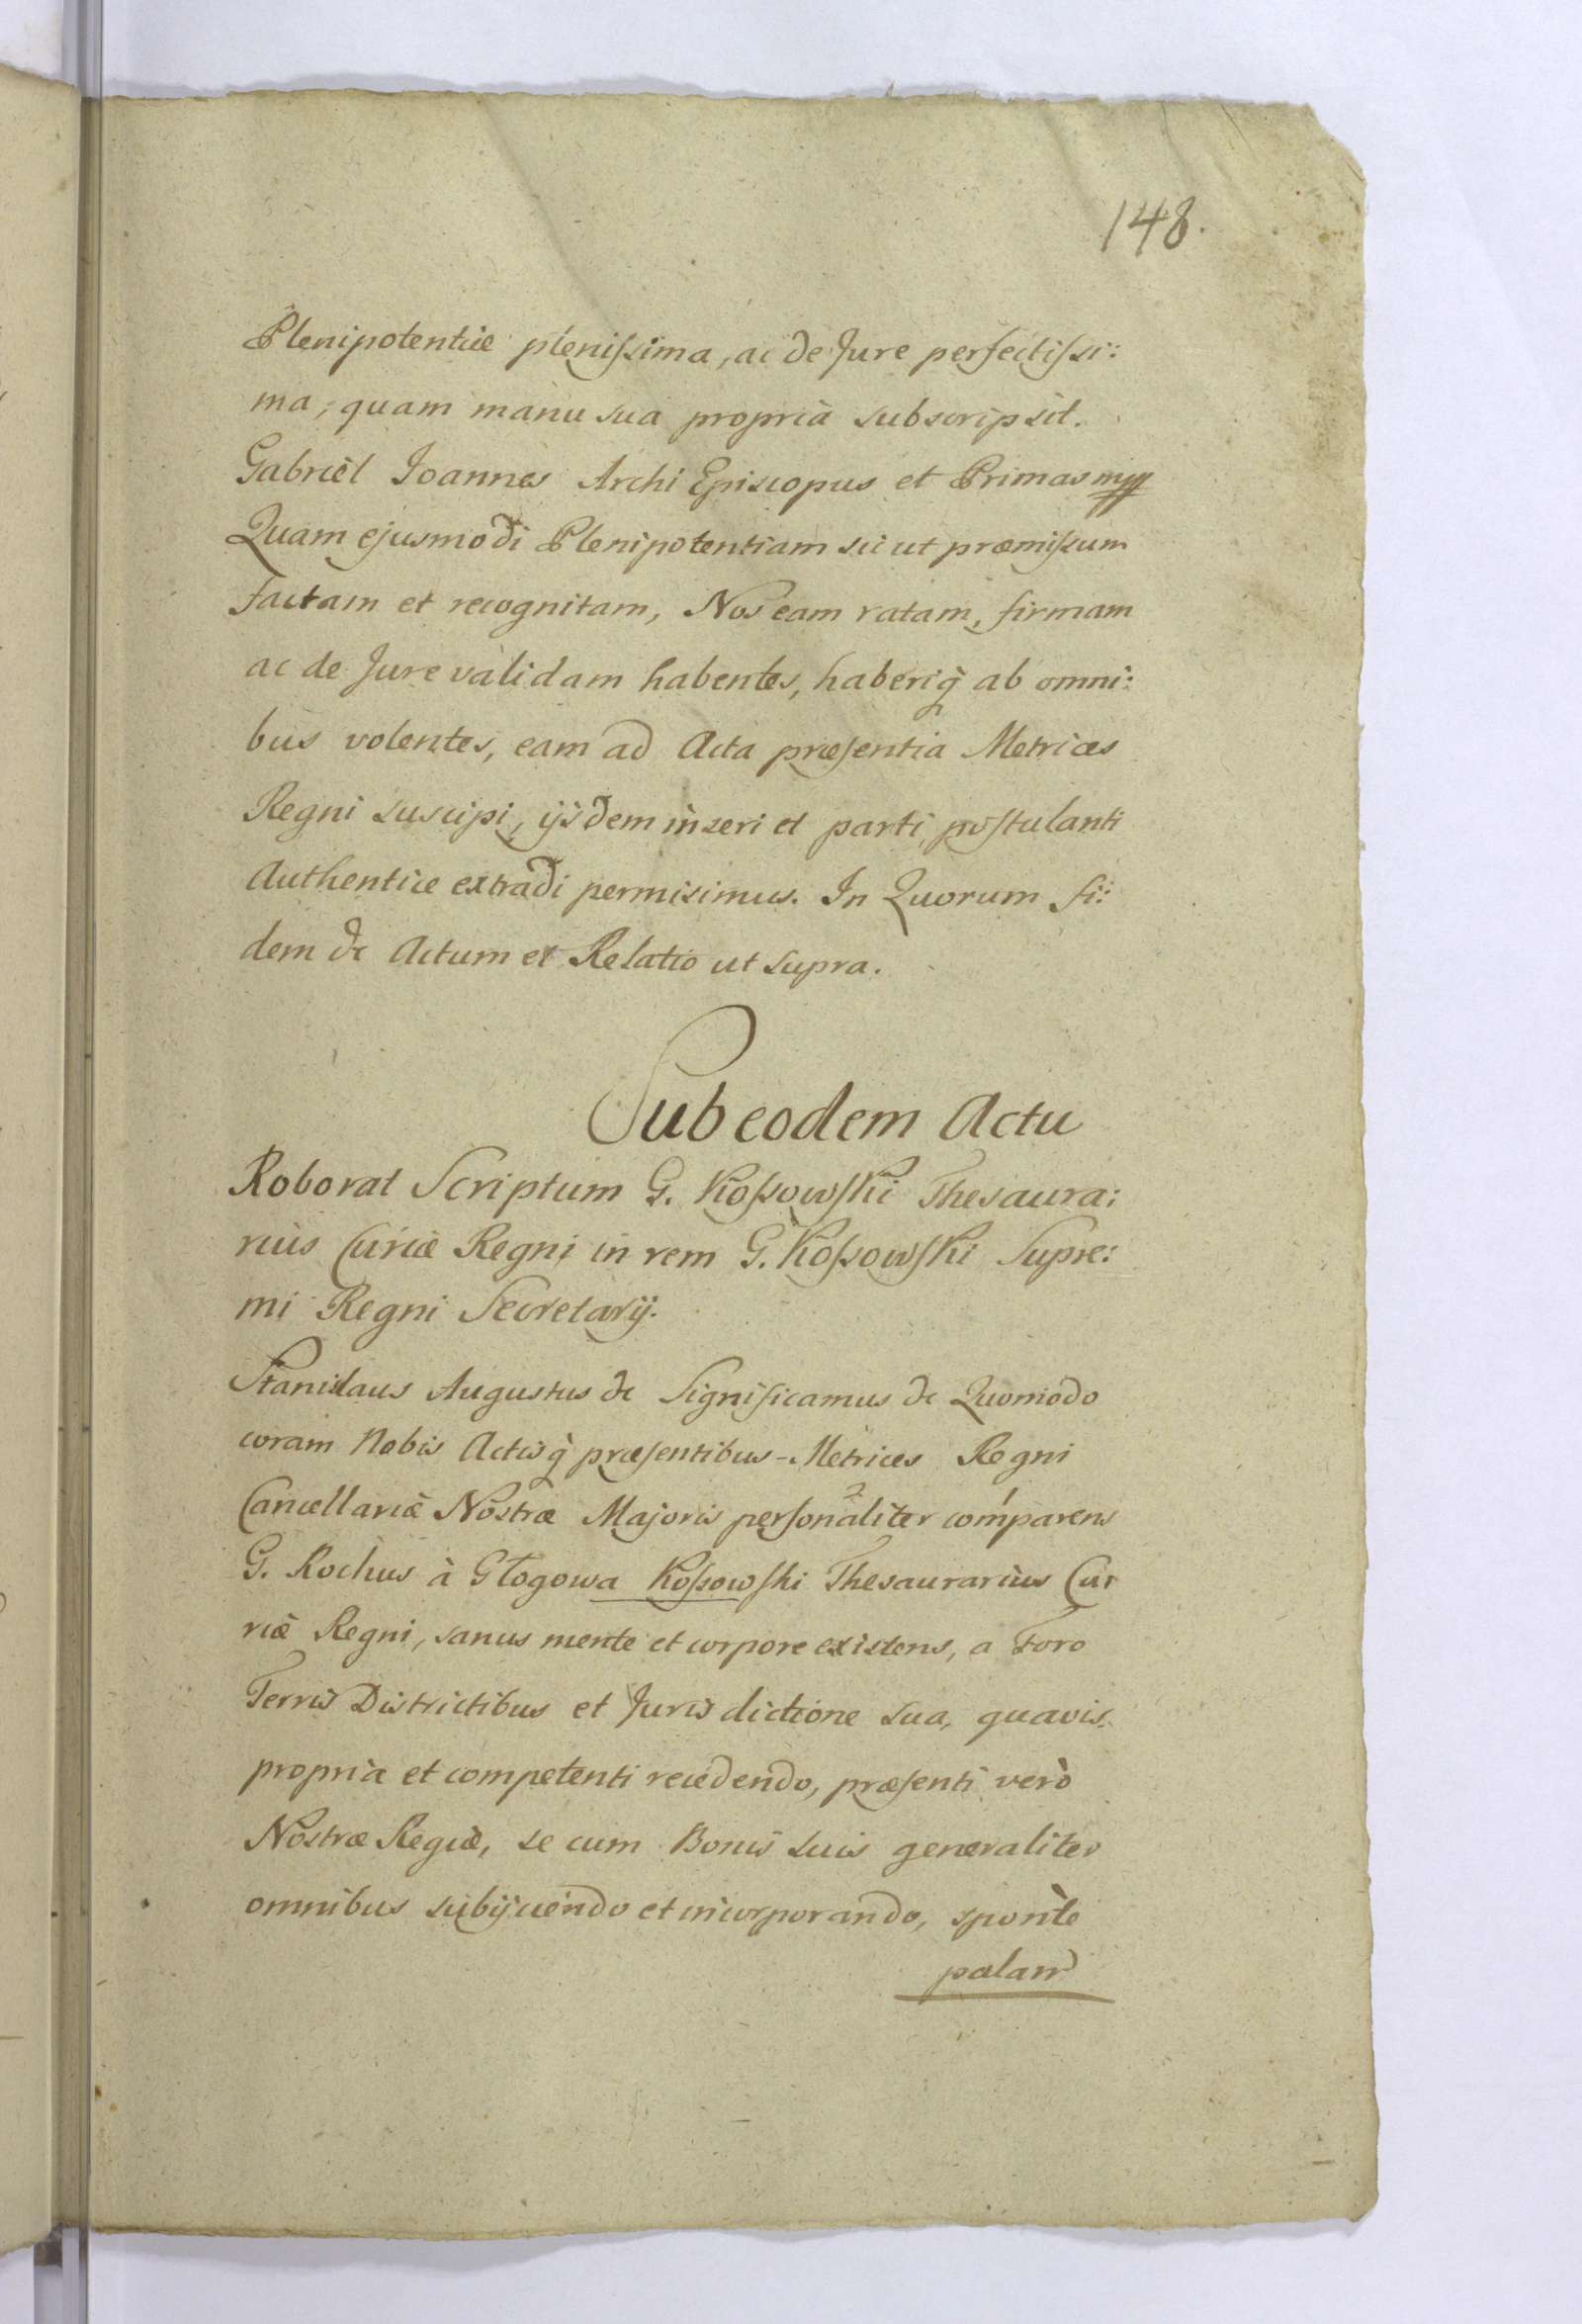 148.
Plenipotentiæ pleniſsima, ac de Jure perfectiſsi:
ma, quam manu sua propriâ subscripsit.
Gabriel Joannes Archi Episcopus et Primas mpp
Quam ejusmodi Plenipotentiam sicut præmiſsum
factam et recognitam, Nos eam ratam, firmam
ac de Jure validam habentes, haberiq̀ ab omni:
bus volentes, eam ad Acta præſentia Metrices
Regni suscipi, ijsdem inseri et parti poſtulanti
Authentice extradi permisimus. In Quorum fi:
dem &c Actum et Relatio ut supra.
Sub eodem Actu
Roborat Scriptum G. Koſsowſki Thesaura:
rius Curiæ Regni in rem G. Koſsowſki Supre:
mi Regni Secretarij.
Stanislaus Augustus &c Significamus &c Quomodo
coram Nobis Actisq̀ præſentibus Metrices Regni
Cancellariæ Nostræ Majoris perſonaliter comparens
G. Rochus à Głogowa Koſsowſki Thesaurarius Cu
riæ Regni, sanus mente et corpore existens, a Foro
Terris Districtibus et Jurisdictione sua, quavis
propria et competenti recedendo, præſenti verò
Nostræ Regiæ, se cum Bonis suis generaliter
omnibus subijciendo et incorporando, sponte
palam